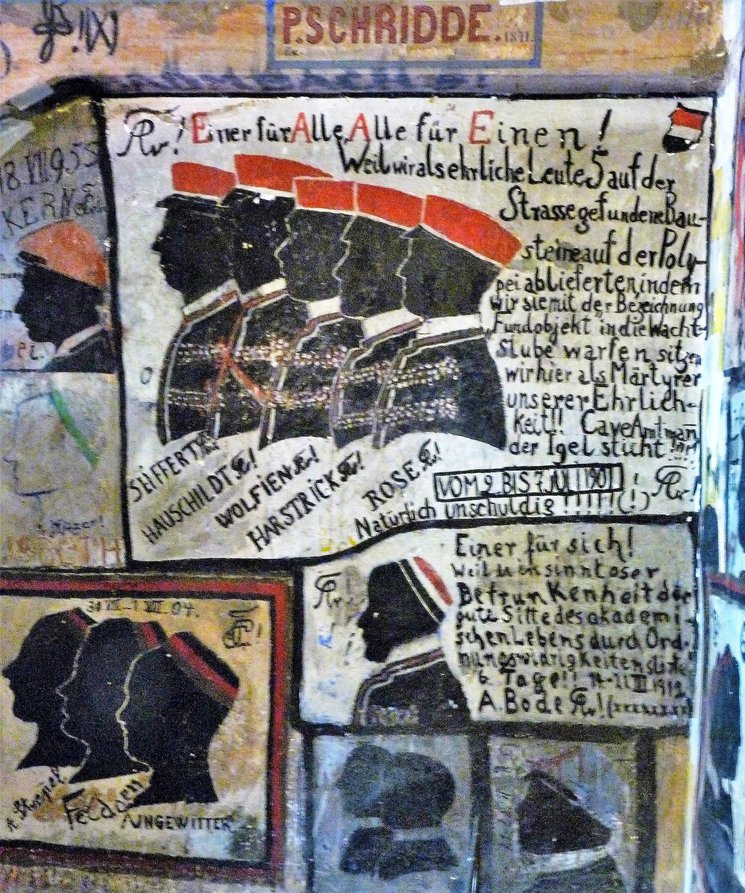 P. SCHRIDDE. 1871.
18.VII.955
KERN
Einer für Alle, Alle für Einen!
Weil wir als ehrliche Leute 5 auf der
Strasse gefundene Bau-
steine auf der Poly-
pei ablieferten indem
wir sie mit der Bezeichnung
Fundobjekt in die Wacht-
stube warfen sitzen
wir hier als Märtyrer
unserer Ehrlich-
keit!! Cave Amtman
der Igel sticht!!
SEIFFERT
HAUSCHILDT!
WOLFIEN!
HARSTRICK!
ROSE!
VOM 2. BIS 7. JULI 1901
Natürlich unschuldig!!!!!(!)
Einer für sich!
Weil er in sinnloser
Betrunkenheit die
gute Sitte des akademi-
schen Lebens durch Ord-
nungswidrigkeiten störte!
6 Tage!!
1912
A. Bode
04.
Feldam
UNGEWITTER